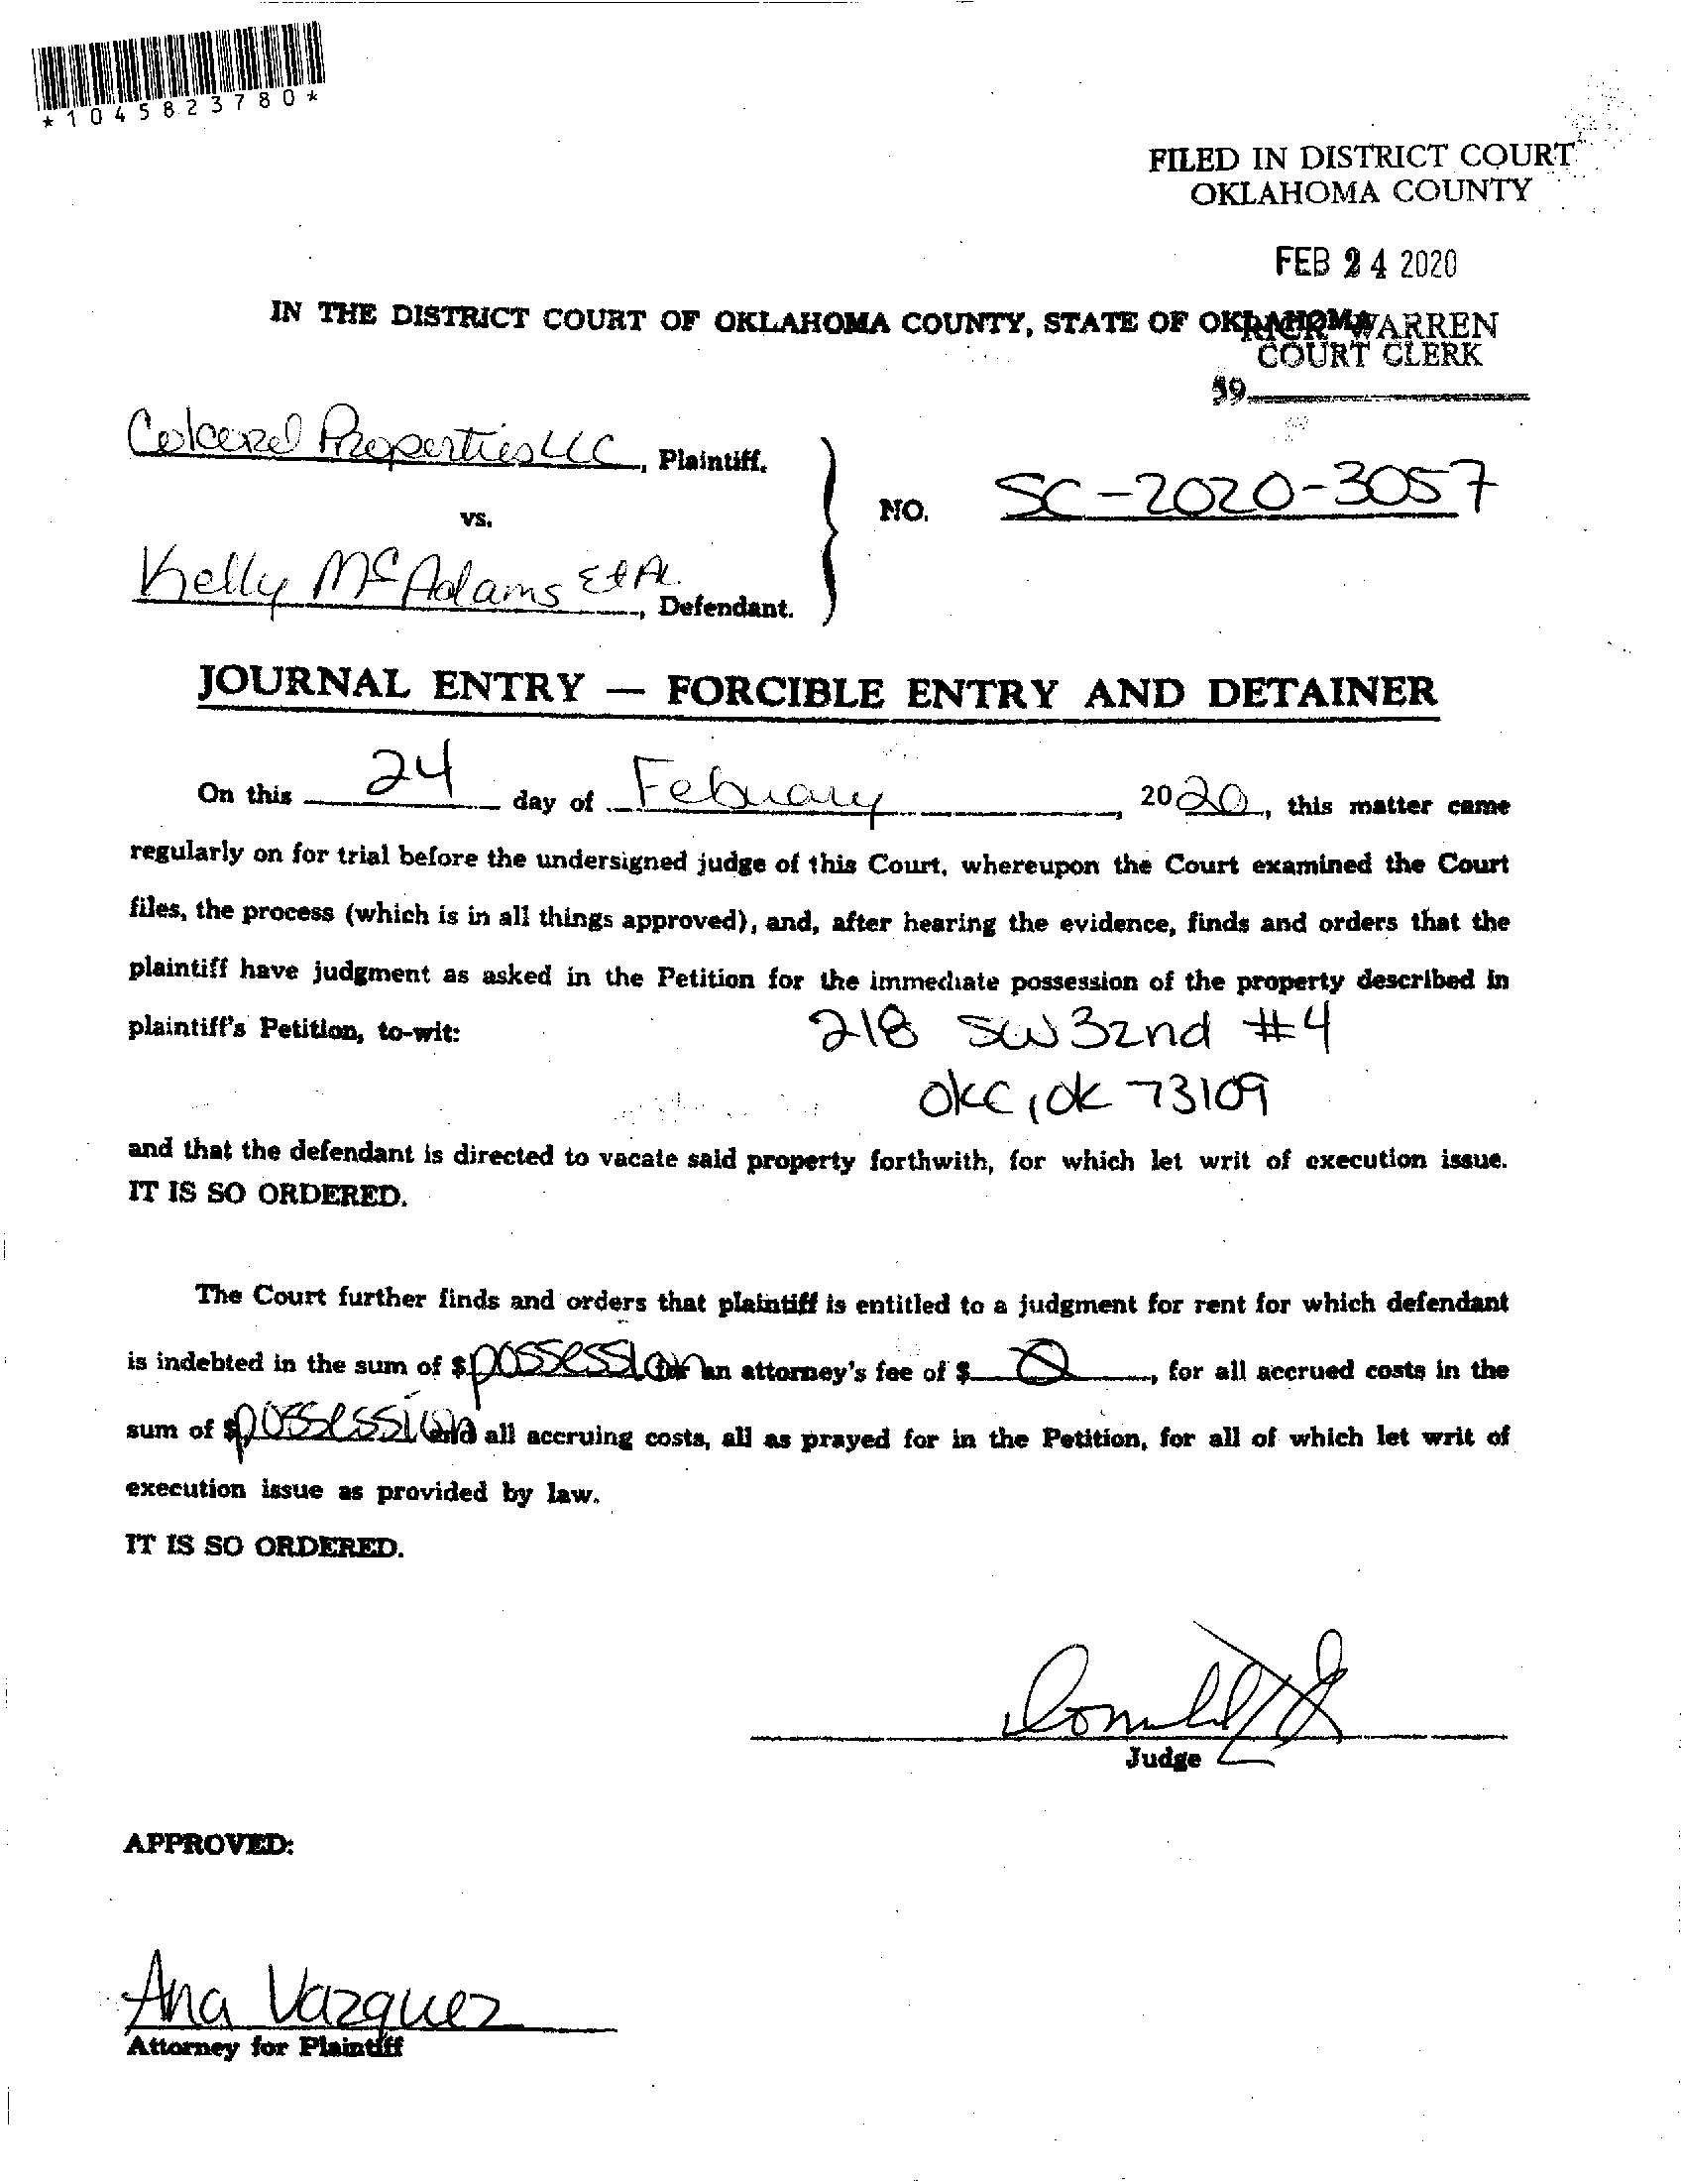 *1045823780*
FILED IN DISTRICT COURT
OKLAHOMA COUNTY
FEB 24 2020
IN THE DISTRICT COURT OF OKLAHOMA COUNTY, STATE OF OKLAHOMA
RICK WARREN
COURT CLERK
39
Properties LLC, Plaintiff,
vs.
NO. SC-2020-3057
Kelly McAdams Et Al., Defendant.
JOURNAL ENTRY — FORCIBLE ENTRY AND DETAINER
On this 24 day of Febuary, 2020, this matter came
regularly on for trial before the undersigned judge of this Court, whereupon the Court examined the Court
files, the process (which is in all things approved), and, after hearing the evidence, finds and orders that the
plaintiff have judgment as asked in the Petition for the immediate possession of the property described in
plaintiff's Petition, to-wit: 218 SW 32nd #4
OKC, OK 73109
and that the defendant is directed to vacate said property forthwith, for which let writ of execution issue.
IT IS SO ORDERED.
The Court further finds and orders that plaintiff is entitled to a judgment for rent for which defendant
is indebted in the sum of $ possession for an attorney's fee of $ 0, for all accrued costs in the
sum of $ possession and all accruing costs, all as prayed for in the Petition, for all of which let writ of
execution issue as provided by law.
IT IS SO ORDERED.
Judge
APPROVED:
Ana Vazquez
Attorney for Plaintiff